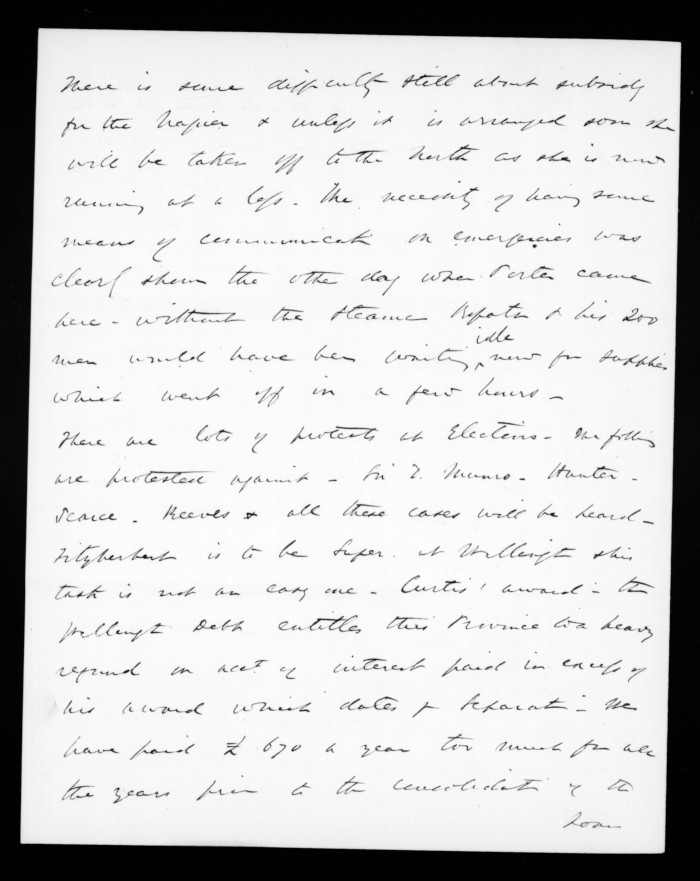 There is some difficulty still about subsidy
for the Napier & unless it is arranged soon she
will be taken off to the North as she is now
running at a loss - The necessity of having some
means of communicatn on emergencies was
clearly shewn the other day when Porter came
here - without the steamer Ropata & his 200
men would have been waiting idle now for supplies
which went off in a few hours -
There are lots of protests at Elections - The follg
are protested against - Sir D. Munro - Hunter -
Searce - Reeves & all these cases will be heard -
Fitzherbert is to be Super. at Wellingt his
task is not an easy one - Curtis' award - the
Wellingt Debt entitles this Province to a heavy
refund on acct of interest paid in excess of
his award which dates fr Separatn - We
have paid £670 a year too much for all
the years prior to the consolidatn of the
Loan